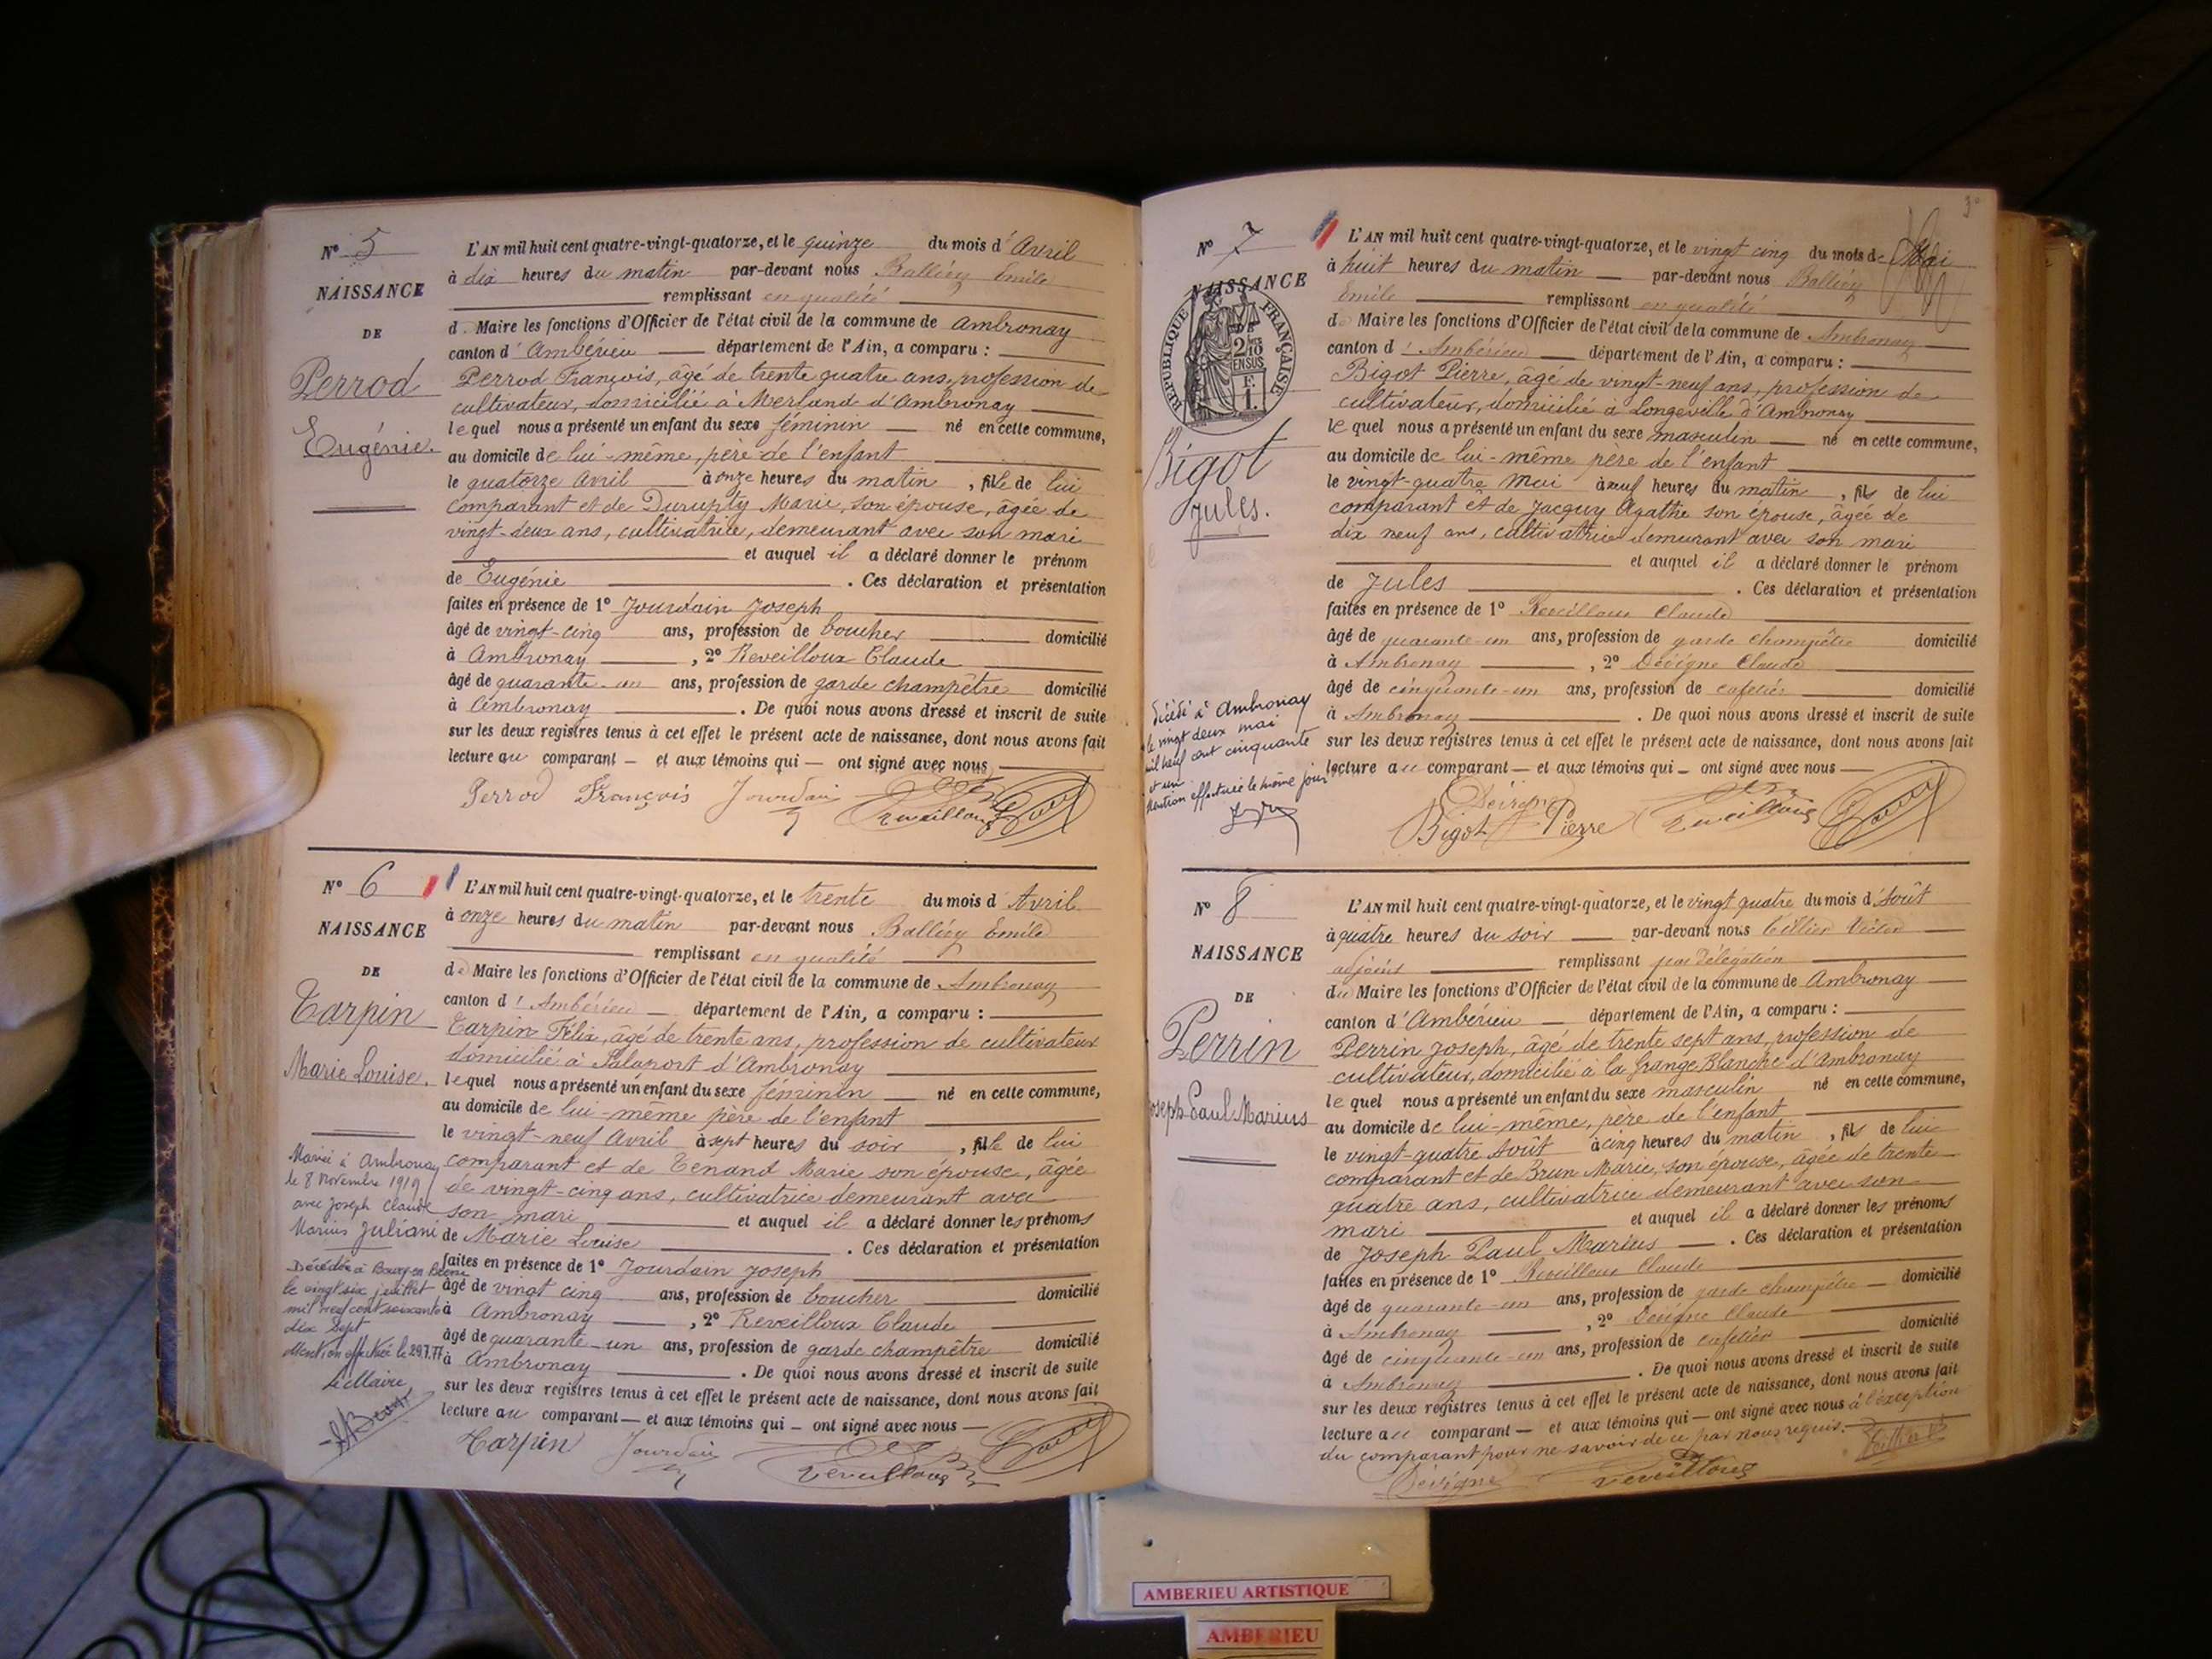 N° 5
NAISSANCE
DE
Perrod
Eugénie.
L'AN mil huit cent quatre-vingt-quatorze, et le quinze du mois d'Avril
à dix heures du matin par-devant nous Balliey Emile
remplissant en qualité
d. Maire les fonctions d'Officier de l'état civil de la commune de Ambronay
canton d'Ambérieu département de l'Ain, a comparu :
Perrod François, âgé de trente quatre ans, profession de
cultivateur, domicilié à Merland d'Ambronay
lequel nous a présenté un enfant du sexe féminin né en cette commune,
au domicile de lui-même, père de l'enfant
le quatorze Avril à onze heures du matin, fille de lui
comparant et de Durupty Marie, son épouse, âgée de
vingt-deux ans, cultivatrice, demeurant avec son mari
et auquel il a déclaré donner le prénom
de Eugénie. Ces déclaration et présentation
faites en présence de 1° Jourdain Joseph
âgé de vingt-cinq ans, profession de boucher domicilié
à Ambronay, 2° Reveilloux Claude
âgé de quarante-un ans, profession de garde champêtre domicilié
à Ambronay. De quoi nous avons dressé et inscrit de suite
sur les deux registres tenus à cet effet le présent acte de naissance, dont nous avons fait
lecture au comparant — et aux témoins qui — ont signé avec nous
Perrod François Jourdain Reveilloux
N° 6
NAISSANCE
DE
Tarpin
Marie Louise.
Marié à Ambronay
le 8 Novembre 1919
avec Joseph Claude
Marius Juliani
Décédée à Bourg en Bresse
le vingt six juillet
mil neuf cent soixante
dix sept
Mention effectuée le 29.7.77
Le Maire
L'AN mil huit cent quatre-vingt-quatorze, et le trente du mois d'Avril
à onze heures du matin par-devant nous Balliey Emile
remplissant en qualité
de Maire les fonctions d'Officier de l'état civil de la commune de Ambronay
canton d'Ambérieu — département de l'Ain, a comparu :
Tarpin Félix, âgé de trente ans, profession de cultivateur
domicilié à Salaport d'Ambronay
lequel nous a présenté un enfant du sexe féminin — né en cette commune,
au domicile de lui-même père de l'enfant
le vingt-neuf Avril à sept heures du soir, fille de lui
comparant et de Tenand Marie son épouse, âgée
de vingt-cinq ans, cultivatrice demeurant avec
son mari et auquel il a déclaré donner les prénoms
de Marie Louise. Ces déclaration et présentation
faites en présence de 1° Jourdain Joseph
âgé de vingt cinq ans, profession de boucher domicilié
à Ambronay, 2° Reveilloux Claude
âgé de quarante-un ans, profession de garde champêtre domicilié
à Ambronay. De quoi nous avons dressé et inscrit de suite
sur les deux registres tenus à cet effet le présent acte de naissance, dont nous avons fait
lecture au comparant — et aux témoins qui — ont signé avec nous —
Tarpin Jourdain Reveilloux
3e
N° 7
NAISSANCE
RÉPUBLIQUE FRANÇAISE
2/10 EN SUS
F.
1.
Bigot
Jules.
Décédé à Ambronay
le vingt deux mai
mil neuf cent cinquante
et un
Mention effectuée le même jour
L'AN mil huit cent quatre-vingt-quatorze, et le vingt cinq du mois de Mai
à huit heures du matin — par-devant nous Balliey
Emile remplissant en qualité
de Maire les fonctions d'Officier de l'état civil de la commune de Ambronay
canton d'Ambérieu — département de l'Ain, a comparu :
Bigot Pierre, âgé de vingt-neuf ans, profession de
cultivateur, domicilié à Longeville d'Ambronay
lequel nous a présenté un enfant du sexe masculin — né en cette commune,
au domicile de lui-même père de l'enfant
le vingt-quatre Mai à neuf heures du matin, fils de lui
comparant et de Jacquy Agathe son épouse, âgée de
dix neuf ans, cultivatrice demeurant avec son mari
et auquel il a déclaré donner le prénom
de Jules. Ces déclaration et présentation
faites en présence de 1° Reveilloux Claude
âgé de quarante-un ans, profession de garde champêtre domicilié
à Ambronay, 2° Devigne Claude
âgé de cinquante-un ans, profession de cafetier domicilié
à Ambronay. De quoi nous avons dressé et inscrit de suite
sur les deux registres tenus à cet effet le présent acte de naissance, dont nous avons fait
lecture au comparant — et aux témoins qui — ont signé avec nous —
Devigne
Bigot Pierre Reveilloux
N° 8
NAISSANCE
DE
Perrin
Joseph Paul Marius
L'AN mil huit cent quatre-vingt-quatorze, et le vingt quatre du mois d'Août
à quatre heures du soir — par-devant nous Tillier Victor
adjoint remplissant par délégation
du Maire les fonctions d'Officier de l'état civil de la commune de Ambronay
canton d'Ambérieu — département de l'Ain, a comparu :
Perrin Joseph, âgé de trente sept ans, profession de
cultivateur, domicilié à la Grange Blanche d'Ambronay
lequel nous a présenté un enfant du sexe masculin né en cette commune,
au domicile de lui-même, père de l'enfant
le vingt-quatre Août à cinq heures du matin, fils de lui
comparant et de Brun Marie, son épouse, âgée de trente
quatre ans, cultivatrice demeurant avec son
mari et auquel il a déclaré donner les prénoms
de Joseph Paul Marius. Ces déclaration et présentation
faites en présence de 1° Reveilloux Claude
âgé de quarante-un ans, profession de garde champêtre domicilié
à Ambronay, 2° Devigne Claude
âgé de cinquante-un ans, profession de cafetier domicilié
à Ambronay. De quoi nous avons dressé et inscrit de suite
sur les deux registres tenus à cet effet le présent acte de naissance, dont nous avons fait
lecture au comparant — et aux témoins qui — ont signé avec nous à l'exception
du comparant pour ne savoir de ce par nous requis.
Devigne Reveilloux Tillier
AMBERIEU ARTISTIQUE
AMBERIEU